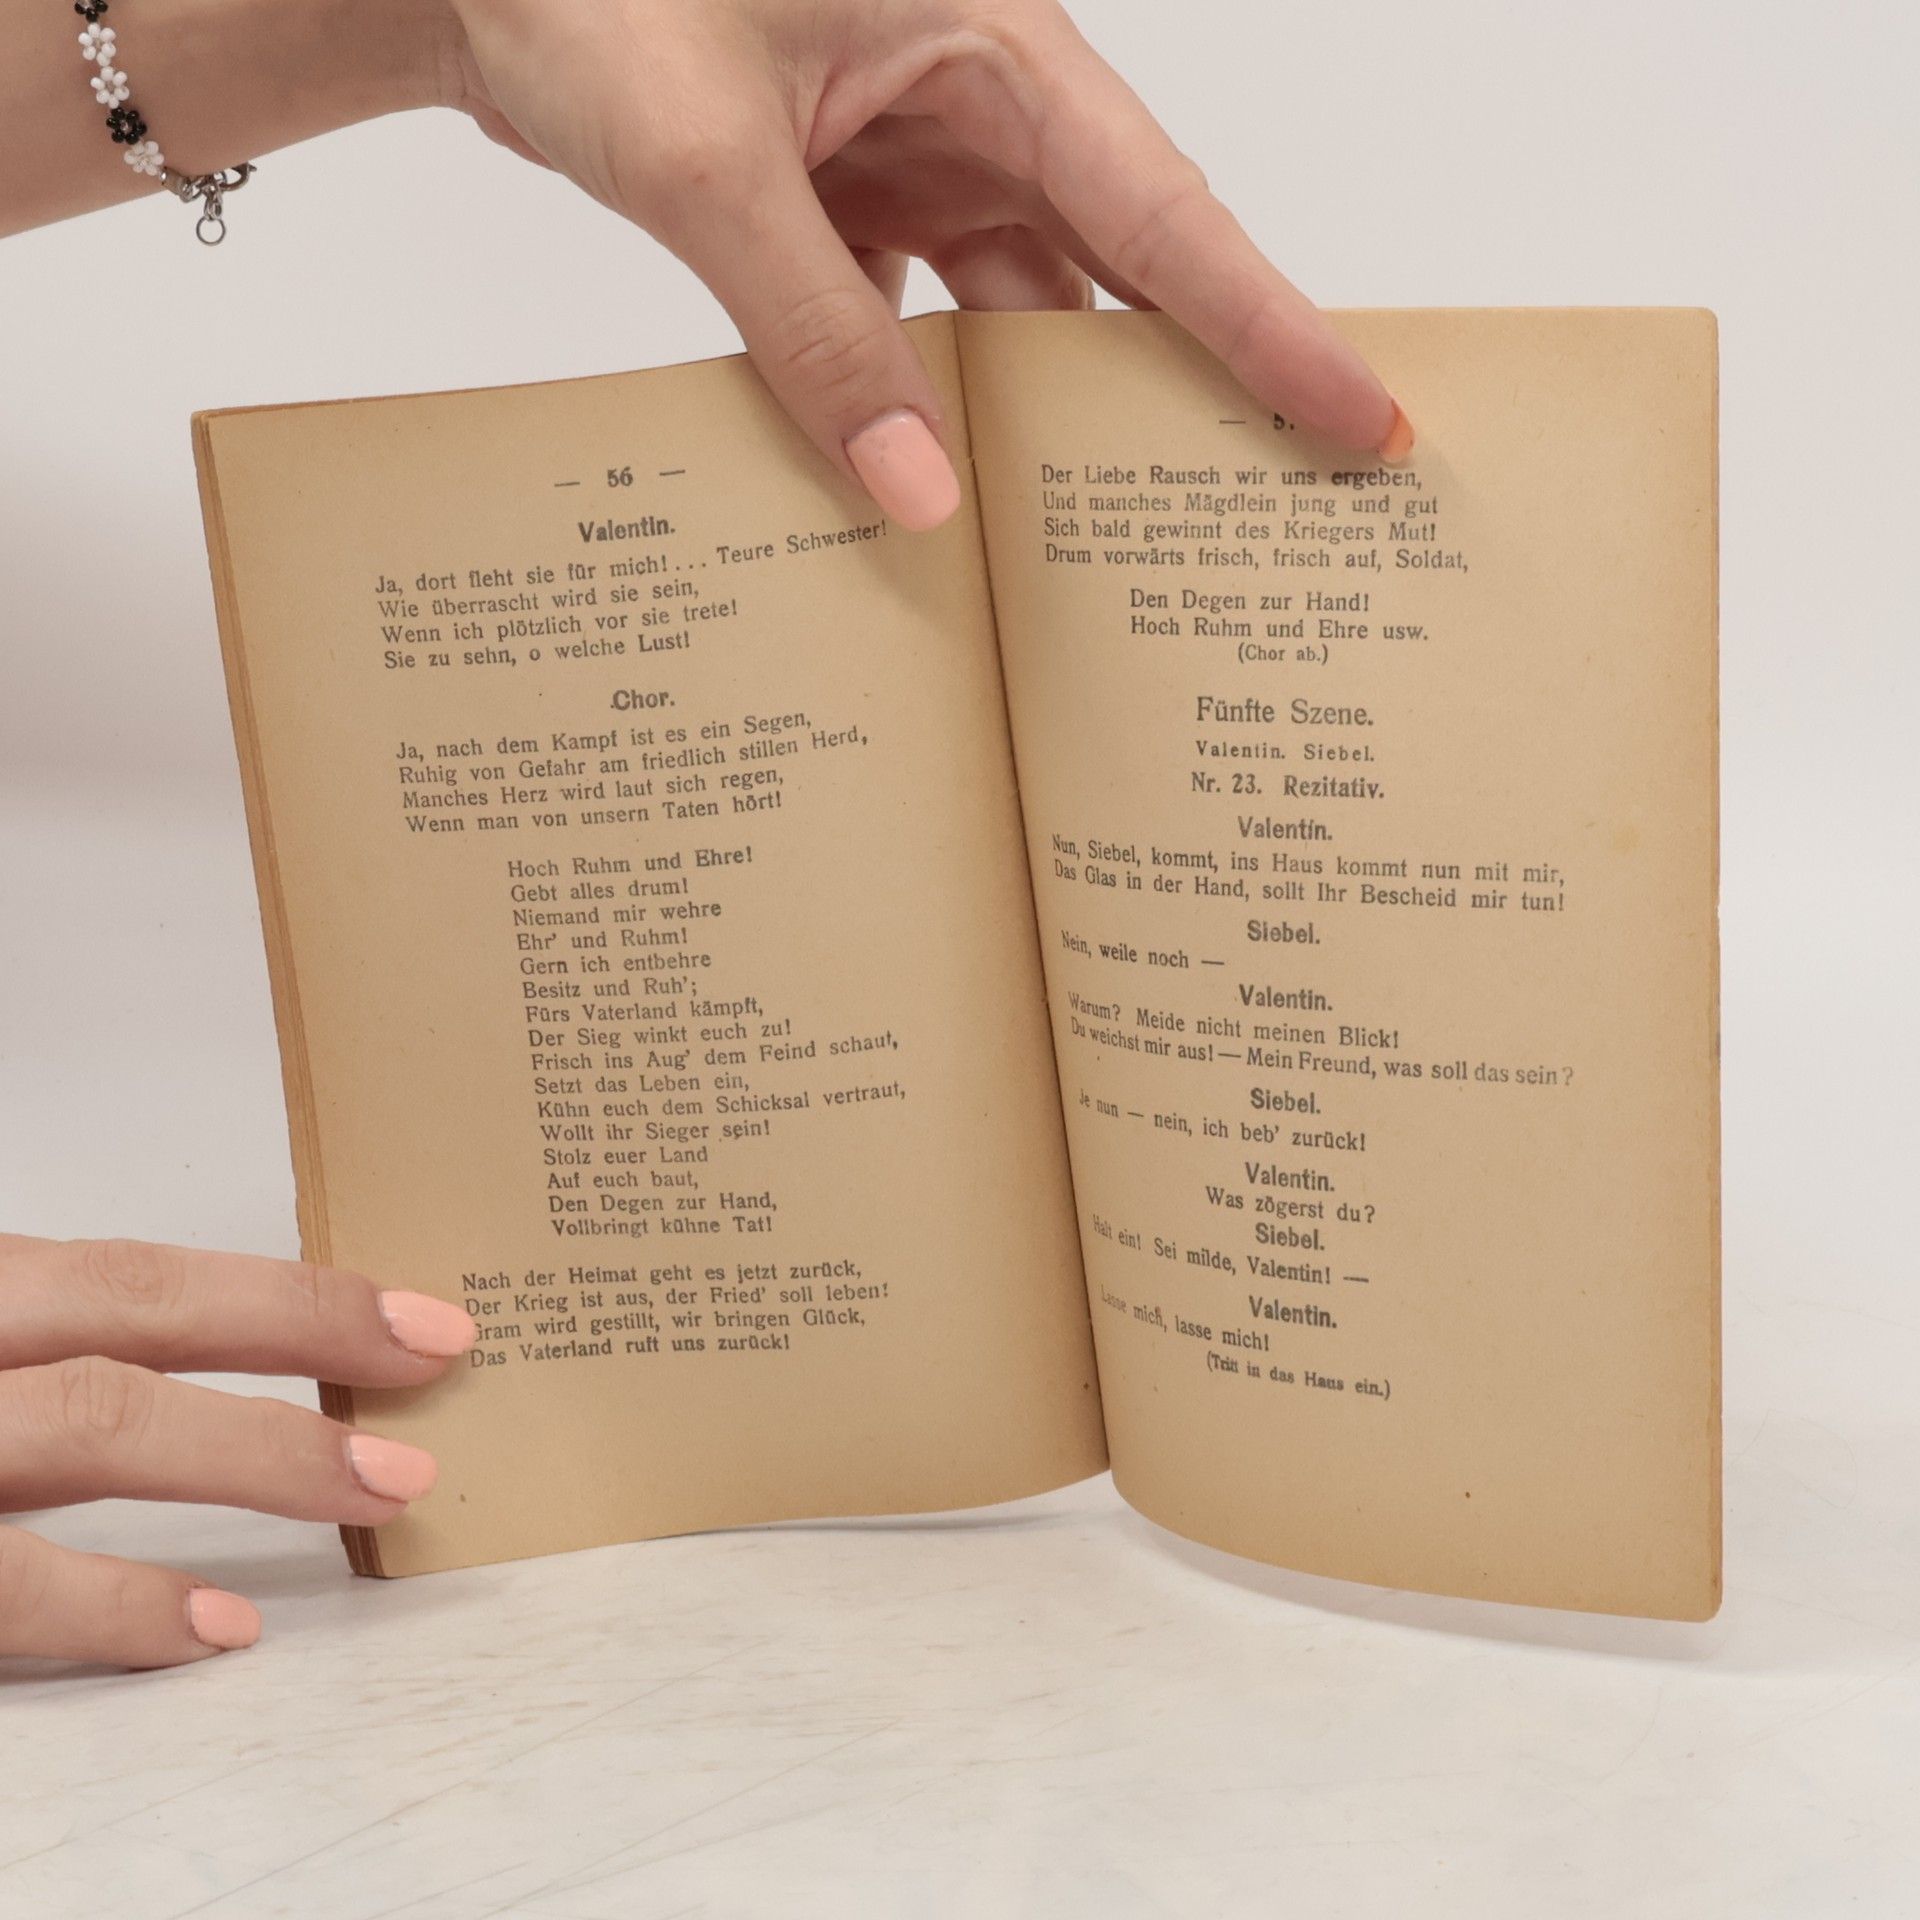 — 56 —
Valentin.
Ja, dort fleht sie für mich! . . . Teure Schwester!
Wie überrascht wird sie sein,
Wenn ich plötzlich vor sie trete!
Sie zu sehn, o welche Lust!
Chor.
Ja, nach dem Kampf ist es ein Segen,
Ruhig von Gefahr am friedlich stillen Herd,
Manches Herz wird laut sich regen,
Wenn man von unsern Taten hört!
Hoch Ruhm und Ehre!
Gebt alles drum!
Niemand mir wehre
Ehr' und Ruhm!
Gern ich entbehre
Besitz und Ruh';
Fürs Vaterland kämpft,
Der Sieg winkt euch zu!
Frisch ins Aug' dem Feind schaut,
Setzt das Leben ein,
Kühn euch dem Schicksal vertraut,
Wollt ihr Sieger sein!
Stolz euer Land
Auf euch baut,
Den Degen zur Hand,
Vollbringt kühne Tat!
Nach der Heimat geht es jetzt zurück,
Der Krieg ist aus, der Fried' soll leben!
Gram wird gestillt, wir bringen Glück,
Das Vaterland ruft uns zurück!
— 5
Der Liebe Rausch wir uns ergeben,
Und manches Mägdlein jung und gut
Sich bald gewinnt des Kriegers Mut!
Drum vorwärts frisch, frisch auf, Soldat,
Den Degen zur Hand!
Hoch Ruhm und Ehre usw.
(Chor ab.)
Fünfte Szene.
Valentin. Siebel.
Nr. 23. Rezitativ.
Valentin.
Nun, Siebel, kommt, ins Haus kommt nun mit mir,
Das Glas in der Hand, sollt Ihr Bescheid mir tun!
Siebel.
Nein, weile noch —
Valentin.
Warum? Meide nicht meinen Blick!
Du weichst mir aus! — Mein Freund, was soll das sein?
Siebel.
Je nun — nein, ich beb' zurück!
Valentin.
Was zögerst du?
Siebel.
Halt ein! Sei milde, Valentin! —
Valentin.
Lasse mich, lasse mich!
(Tritt in das Haus ein.)